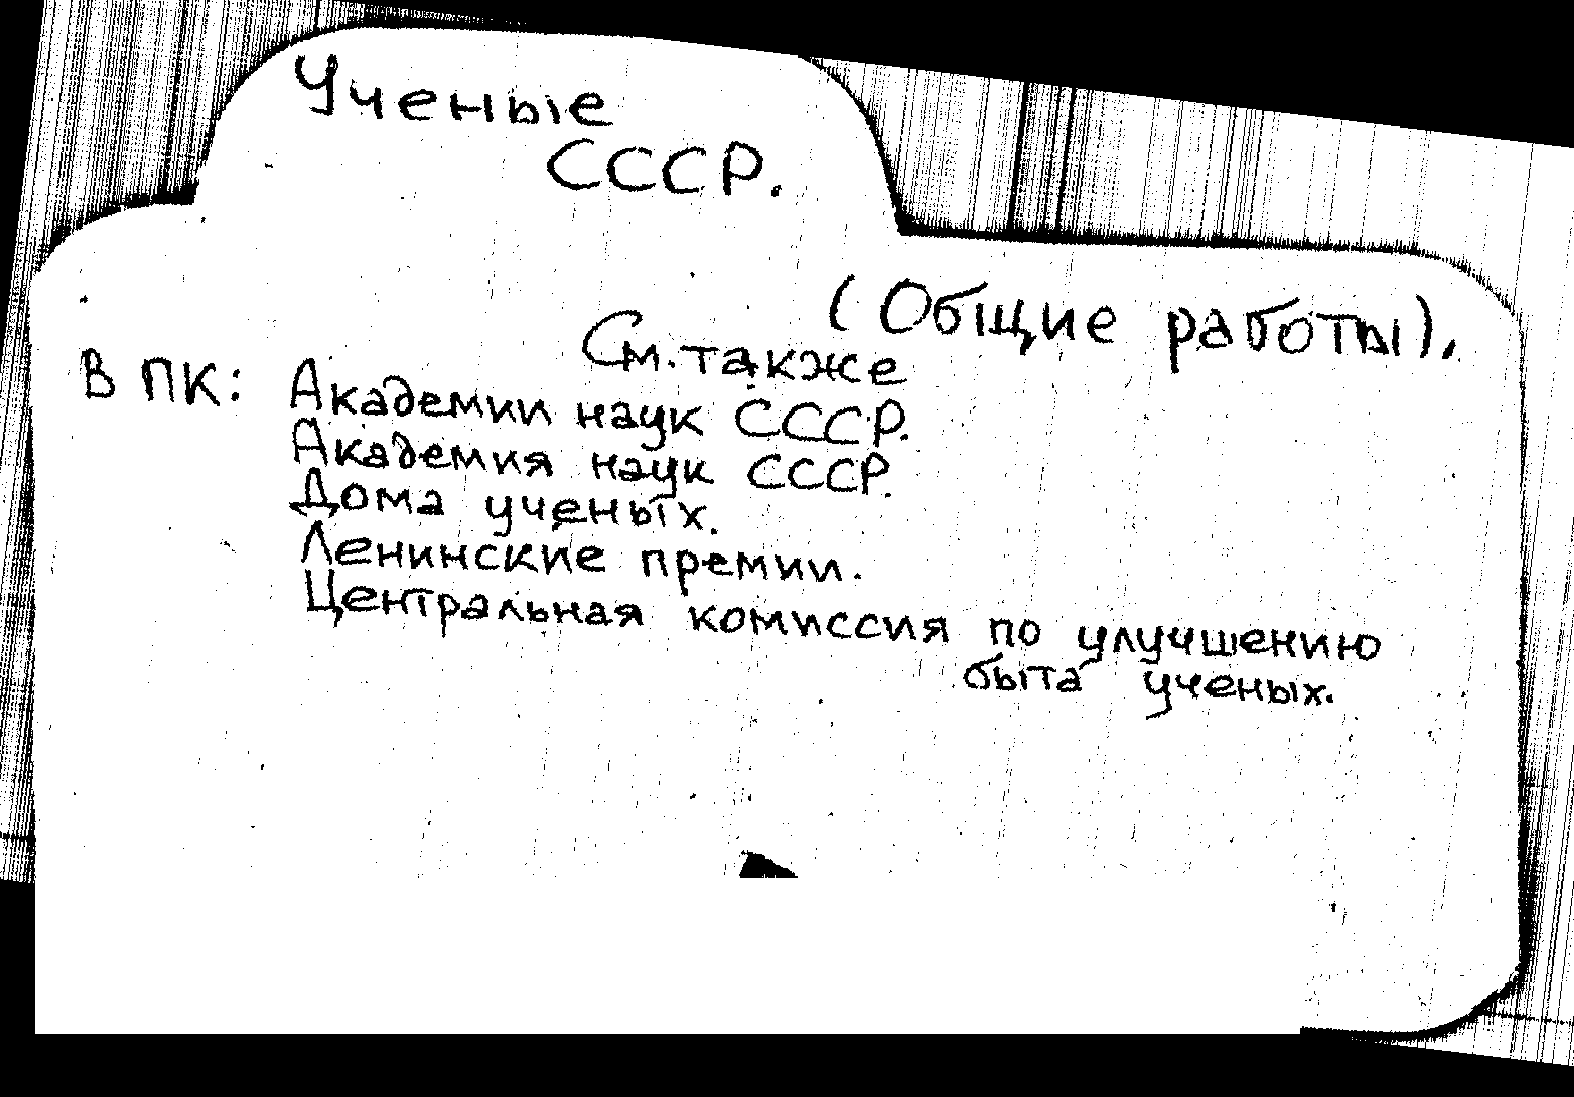 Ученые
СССР.
(Общие работы).
См. также
В ПК: Академии наук СССР.
Академия наук СССР.
Дома ученых.
Ленинские премии.
Центральная комиссия по улучшению
быта ученых.